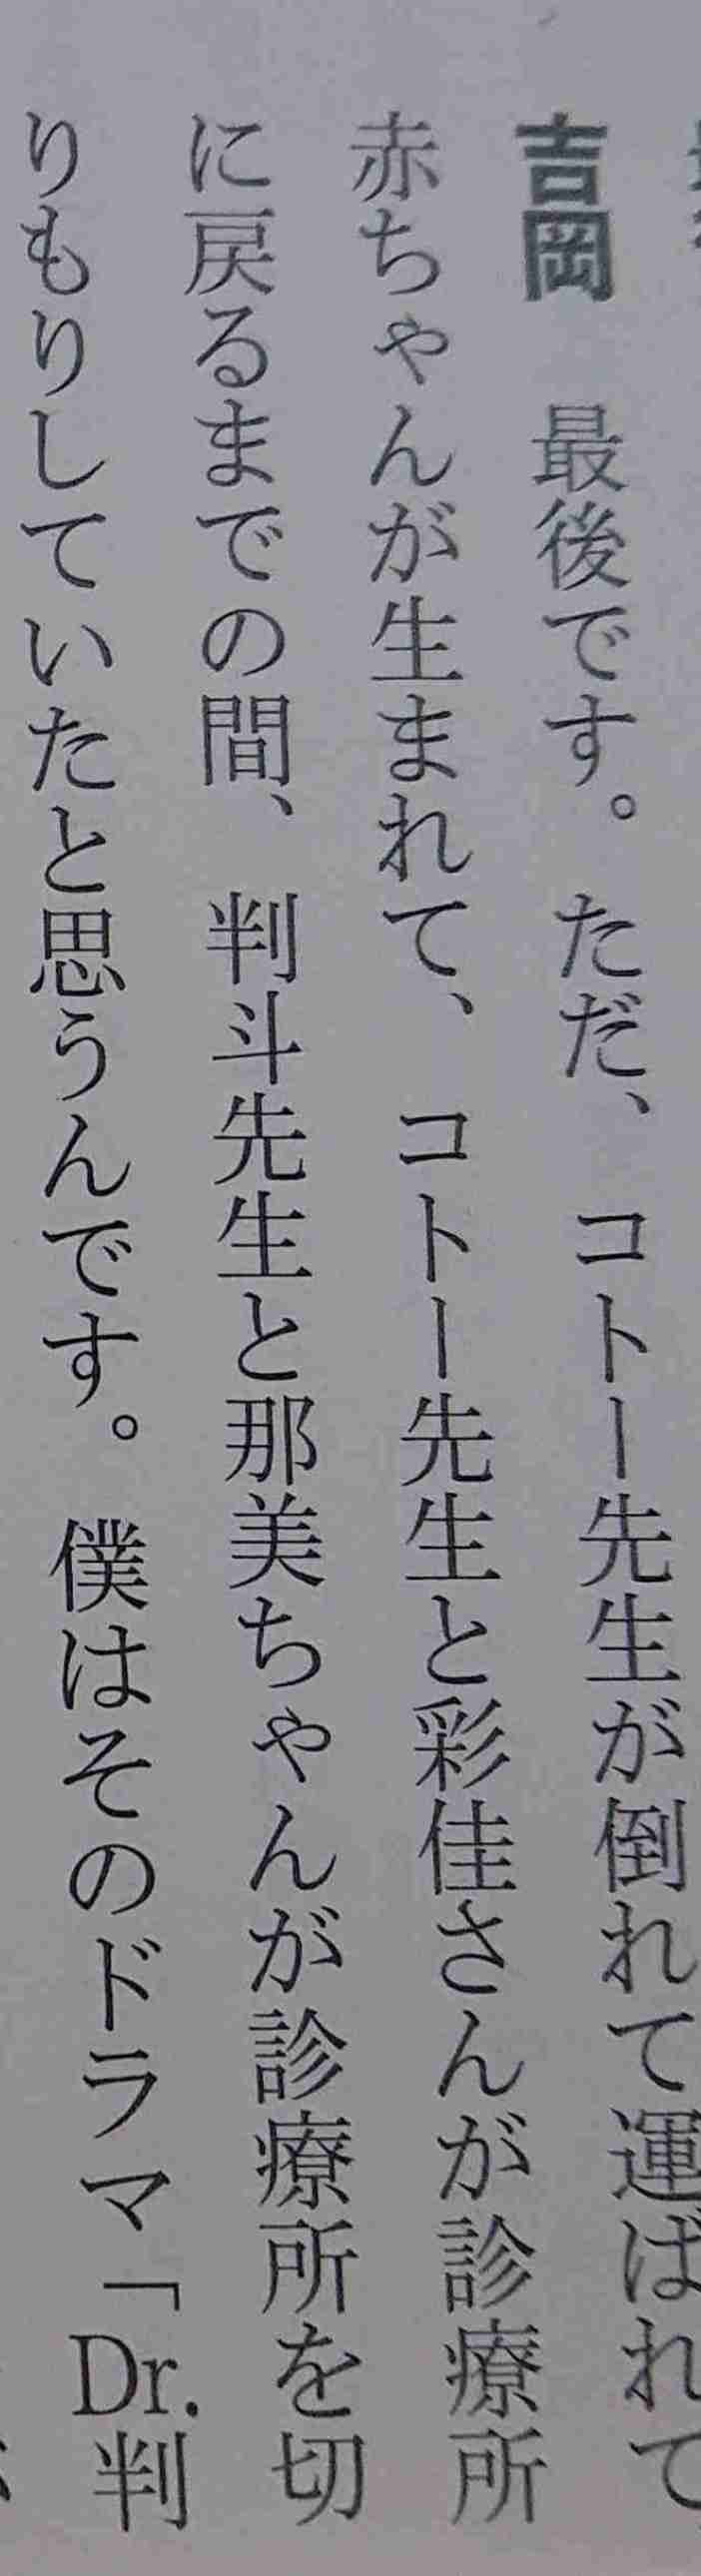 吉岡　最後です。ただ、コトー先生が倒れて運ばれて
赤ちゃんが生まれて、コトー先生と彩佳さんが診療所
に戻るまでの間、判斗先生と那美ちゃんが診療所を切
りもりしていたと思うんです。僕はそのドラマ「Dr.判